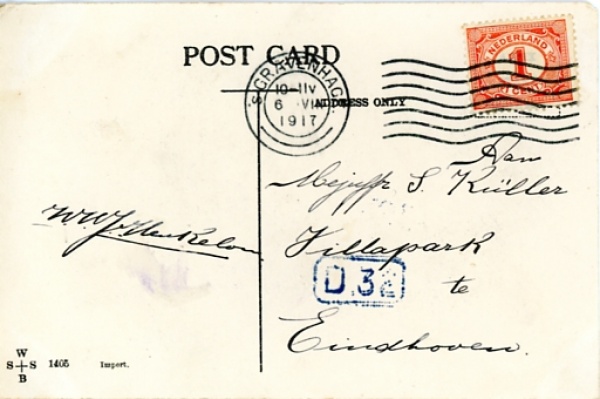 POST CARD
NEDERLAND
1
'SGRAVENHAGE
10-11V
6 VI
1917
ADDRESS ONLY
Aan
Mejuffr S. Küller
Villapark
D.32
te
Eindhoven.
W
S S 1405 Import.
B